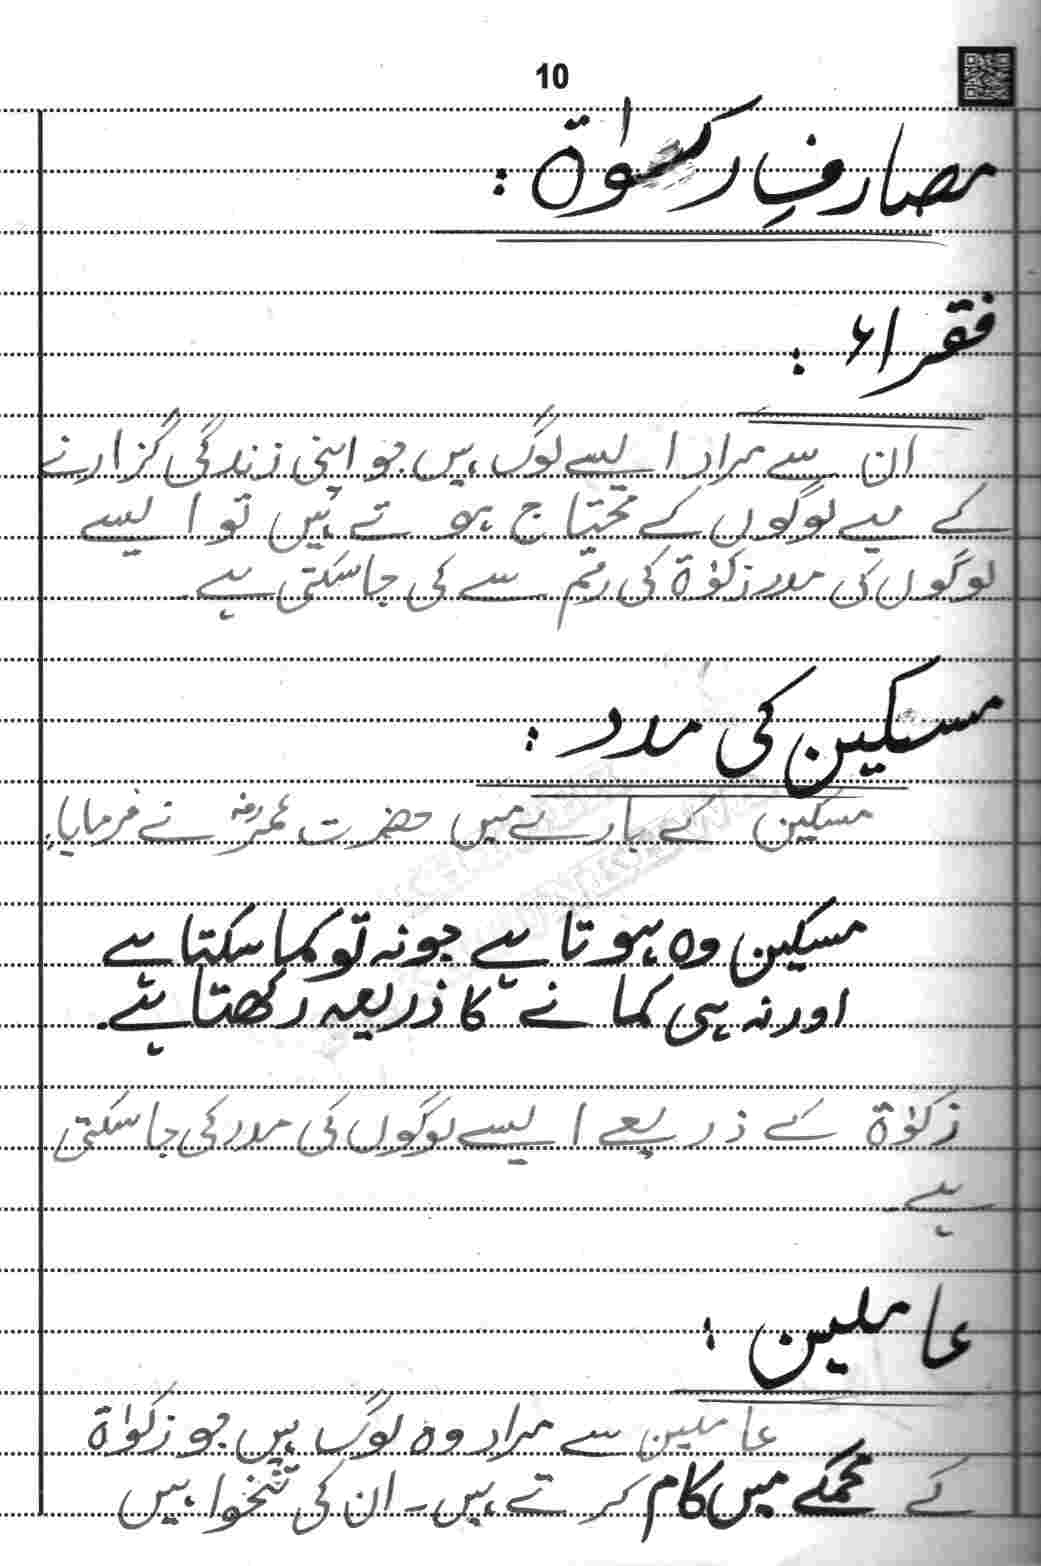 10
مصارفِ زکوٰۃ :
فقراء :
ان سے مراد ایسے لوگ ہیں جو اپنی زندگی گزارنے
کے لیے لوگوں کے محتاج ہوتے ہیں تو ایسے
لوگوں کی مدد زکوٰۃ کی رقم سے کی جا سکتی ہے۔
مسکین کی مدد :
مسکین کے بارے میں حضرت عمرؓ نے فرمایا:
مسکین وہ ہوتا ہے جو نہ تو کما سکتا ہے
اور نہ ہی کمانے کا ذریعہ رکھتا ہے۔
زکوٰۃ کے ذریعے ایسے لوگوں کی مدد کی جا سکتی
ہے۔
عاملین :
عاملین سے مراد وہ لوگ ہیں جو زکوٰۃ
کے محکمے میں کام کرتے ہیں۔ ان کی تنخواہیں